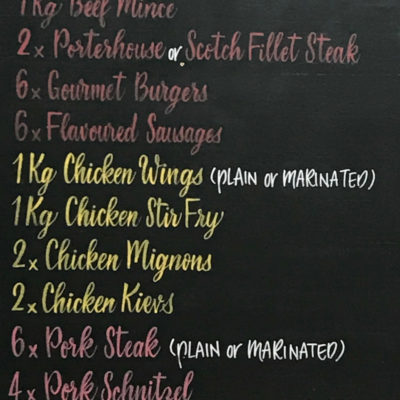 1Kg Beef Mince
2x Porterhouse or Scotch Fillet Steak
6x Gourmet Burgers
6x Flavoured Sausages
1Kg Chicken Wings (PLAIN or MARINATED)
1Kg Chicken Stir Fry
2x Chicken Mignons
2x Chicken Kievs
6x Pork Steak (PLAIN or MARINATED)
4x Pork Schnitzel